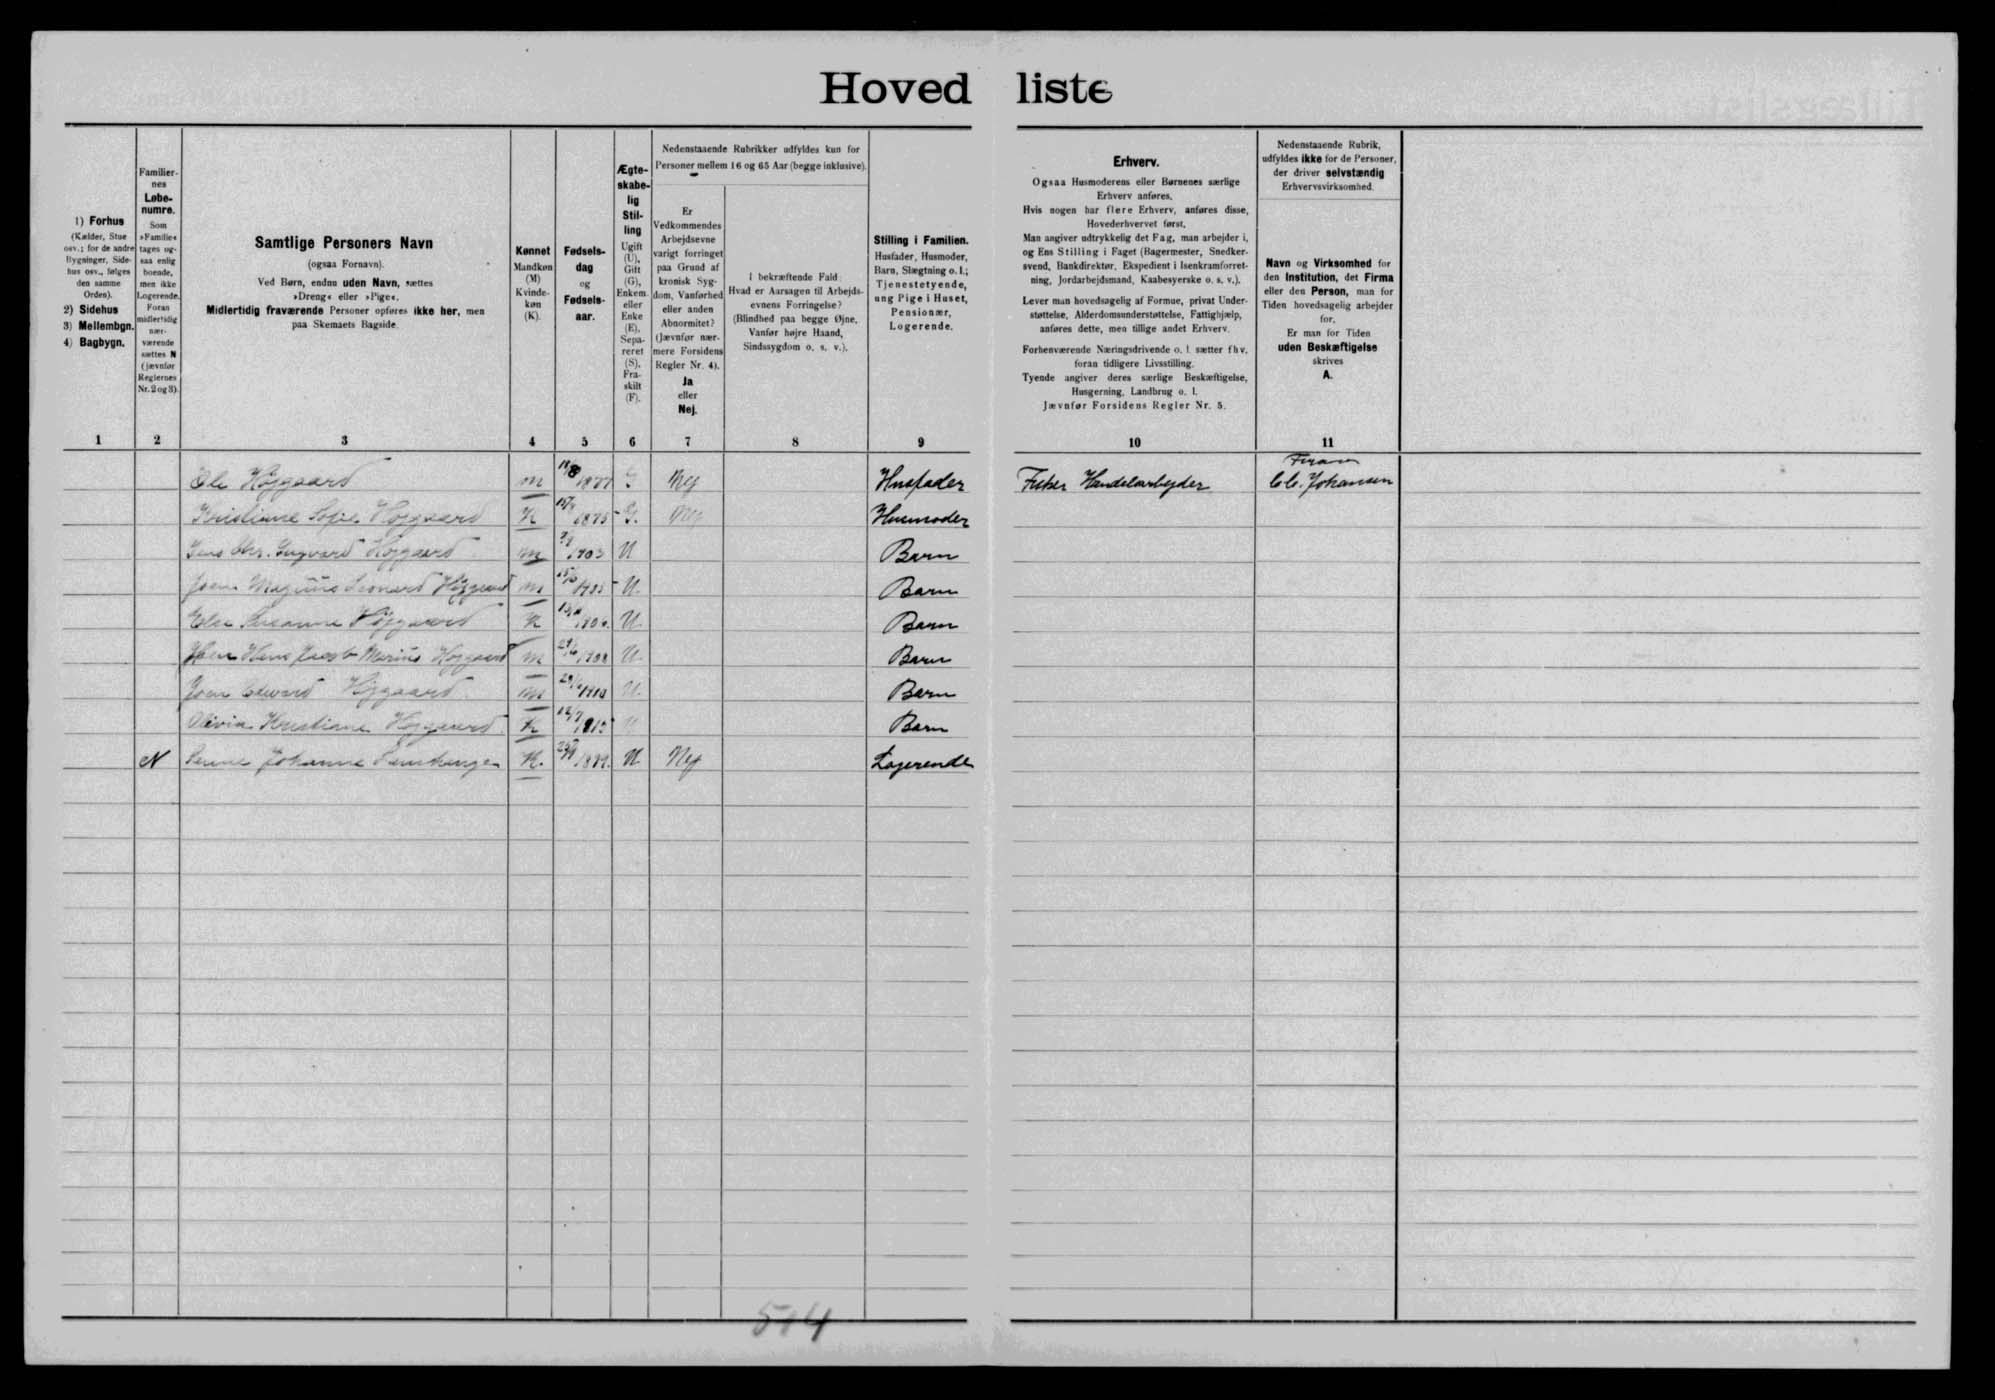 Hovedliste
1) Forhus
(Kælder, Stue
osv.; for de andre
Bygninger, Side-
hus osv., følges
den samme
Orden).
2) Sidehus
3) Mellembgn.
4) Bagbygn.
Familier-
nes
Løbe-
numre.
Som
»Familie«
tages og-
saa enlig
boende,
men ikke
Logerende.
Foran
midlertidig
nær-
værende
sættes N
(jævnfør
Reglernes
Nr. 2 og 3).
Samtlige Personers Navn
(ogsaa Fornavn).
Ved Børn, endnu uden Navn, sættes
»Dreng« eller »Pige«.
Midlertidig fraværende Personer opføres ikke her, men
paa Skemaets Bagside.
Kønnet
Mandkøn
(M)
Kvinde-
køn
(K).
Fødsels-
dag
og
Fødsels-
aar.
Ægte-
skabe-
lig
Stil-
ling
Ugift
(U),
Gift
(G),
Enkem.
eller
Enke
(E),
Sepa-
reret
(S),
Fra-
skilt
(F).
Nedenstaaende Rubrikker udfyldes kun for
Personer mellem 16 og 65 Aar (begge inklusive).
Er
Vedkommendes
Arbejdsevne
varigt forringet
paa Grund af
kronisk Syg-
dom, Vanførhed
eller anden
Abnormitet?
(Jævnfør nær-
mere Forsidens
Regler Nr. 4).
Ja
eller
Nej.
I bekræftende Fald:
Hvad er Aarsagen til Arbejds-
evnens Forringelse?
(Blindhed paa begge Øjne,
Vanfør højre Haand,
Sindssygdom o. s. v.).
Stilling i Familien.
Husfader, Husmoder,
Barn, Slægtning o. l.;
Tjenestetyende,
ung Pige i Huset,
Pensionær,
Logerende.
Erhverv.
Ogsaa Husmoderens eller Børnenes særlige
Erhverv anføres.
Hvis nogen har flere Erhverv, anføres disse,
Hovederhvervet først.
Man angiver udtrykkelig det Fag, man arbejder i,
og Ens Stilling i Faget (Bagermester, Snedker-
svend, Bankdirektør, Ekspedient i Isenkramforret-
ning, Jordarbejdsmand, Kaabesyerske o. s. v.).
Lever man hovedsagelig af Formue, privat Under-
støttelse, Alderdomsunderstøttelse, Fattighjælp,
anføres dette, men tillige andet Erhverv.
Forhenværende Næringsdrivende o. l. sætter fhv.
foran tidligere Livsstilling.
Tyende angiver deres særlige Beskæftigelse,
Husgerning, Landbrug o. l.
Jævnfør Forsidens Regler Nr. 5.
Nedenstaaende Rubrik,
udfyldes ikke for de Personer,
der driver selvstændig
Erhvervsvirksomhed.
Navn og Virksomhed for
den Institution, det Firma
eller den Person, man for
Tiden hovedsagelig arbejder
for.
Er man for Tiden
uden Beskæftigelse
skrives
A.
1 2 3 4 5 6 7 8 9 10 11
Ole Højgaard m 1877 G Nej Husfader Fisker Handelarbejder Firma Chr. Johansen
Kristiane Sofie Højgaard K 1875 G. Nej Husmoder
Jens Chr. Ingvard Højgaard m 1903 U Barn
Joen Magnus Leonard Højgaard m 1905 U. Barn
Else Susanne Højgaard K 1906. U. Barn
Hans Jacob Marius Højgaard m 1908 U Barn
Joen Edward Højgaard m 1910 U. Barn
Olivia Kristiane Højgaard K 1913 U Barn
N Johanne K. U Nej Logerende
514